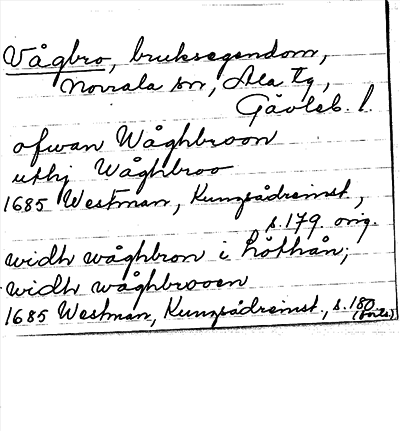 Vågbro, bruksegendom,
Norrala sn, Ala tg,
Gävleb. l.
ofwan Wåghbroon
uthj Wåghbroo
1685 Westman, Kungsådreinst,
s. 179 orig.
widh wåghbron i Lööthån;
widh wåghbrooen
1685 Westman, Kungsådreinst., s. 180
(forts.)